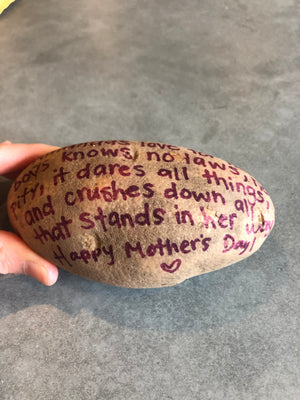 love
knows no laws, no
pity, it dares all things
and crushes down all
that stands in her way
Happy Mother's Day!
♡